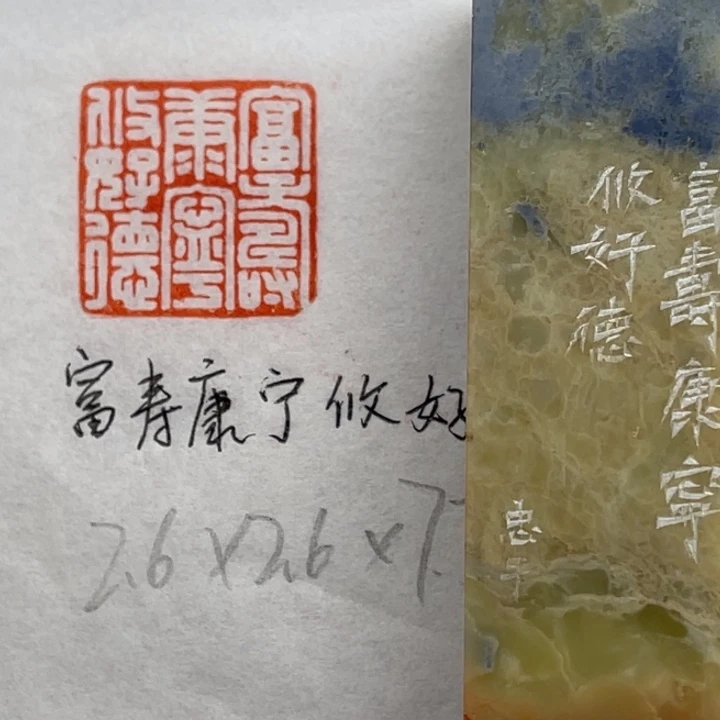 富壽
康寧
攸好德
富寿康宁攸好
2.6×2.6×7.
富壽康寧
攸好德